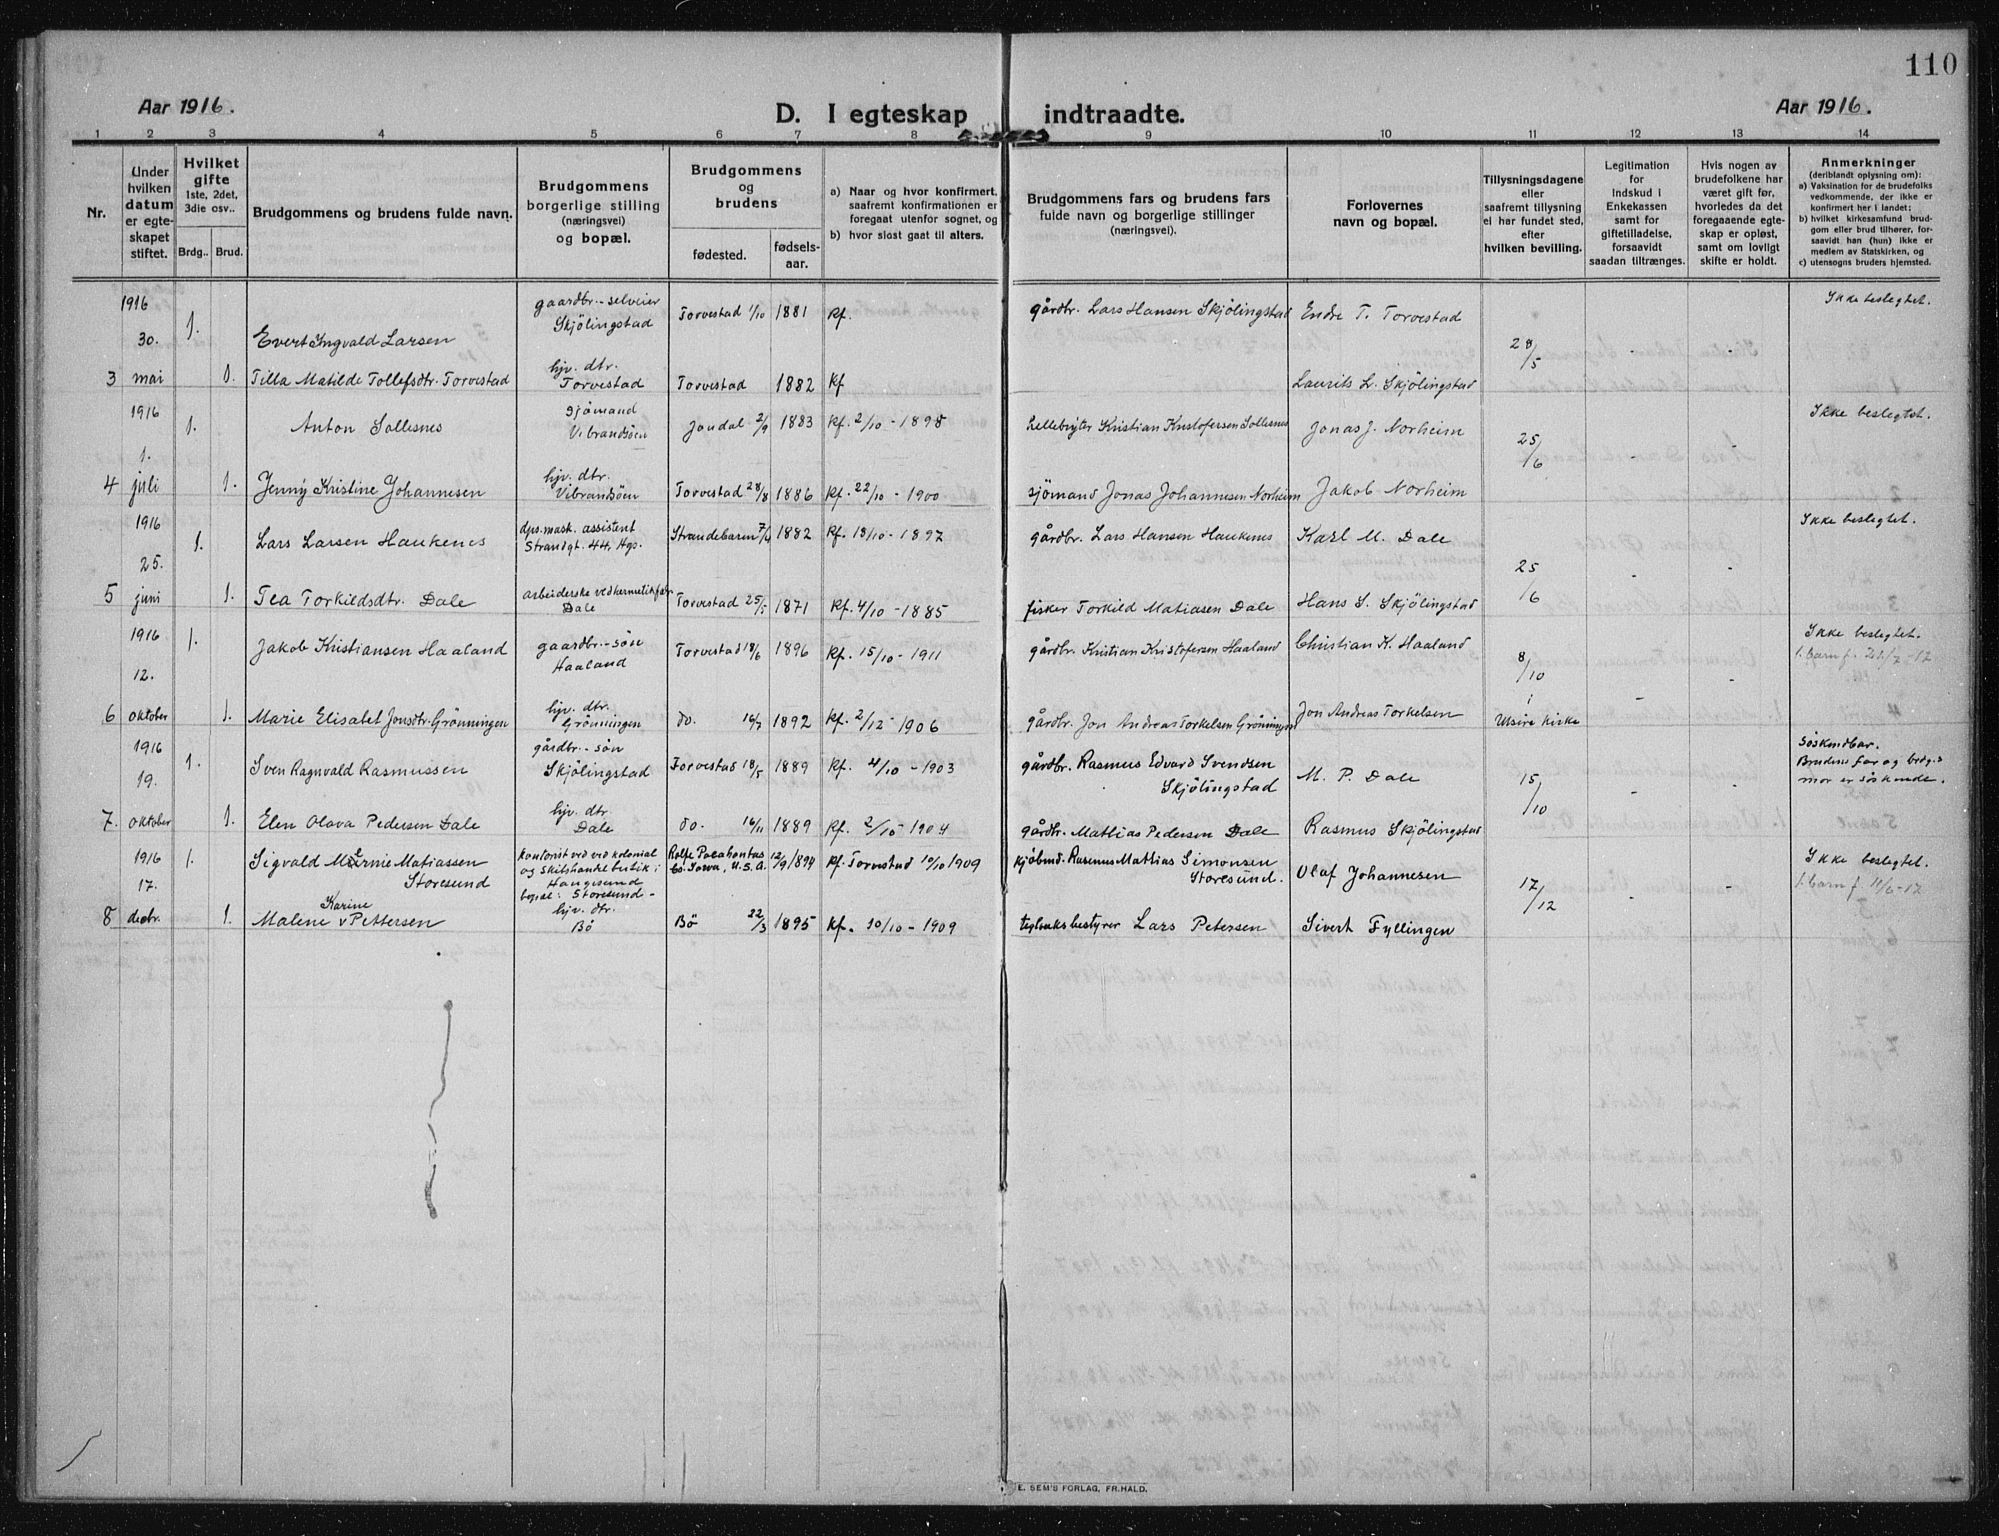 110
Aar 1916.
D. I egteskap indtraadte.
Aar 1916.
1 2 3 4 5 6 7 8 9 10 11 12 13 14
Nr.
Under hvilken datum er egteskapet stiftet.
Hvilket gifte 1ste, 2det, 3die osv..
Brdg.. Brud.
Brudgommens og brudens fulde navn.
Brudgommens borgerlige stilling (næringsvei) og bopæl.
Brudgommens og brudens
fødested.
fødselsaar.
a) Naar og hvor konfirmert, saafremt konfirmationen er foregaat utenfor sognet, og
b) hvor sidst gaat til alters.
Brudgommens fars og brudens fars fulde navn og borgerlige stillinger (næringsvei).
Forlovernes navn og bopæl.
Tillysningsdagene eller saafremt tillysning ei har fundet sted, efter hvilken bevilling.
Legitimation for Indskud i Enkekassen samt for giftetilladelse, forsaavidt saadan tiltrænges.
Hvis nogen av brudefolkene har været gift før, hvorledes da det foregaaende egteskap er opløst, samt om lovligt skifte er holdt.
Anmerkninger (deriblandt oplysning om):
a) Vaksination for de brudefolks vedkommende, der ikke er konfirmert her i landet;
b) hvilket kirkesamfund brudgom eller brud tilhører, forsaavidt han (hun) ikke er medlem av Statskirken, og
c) utensogns bruders hjemsted.
1916 30. 1. Evert Ingvald Larsen gaardbr.-selveier Skjölingstad Torvestad 1/10 1881 kf. gårdbr. Lars Hansen Skjölingstad Endre T. Torvestad 28/5 Ikke beslegtet.
3 mai 1. Tilla Matilde Tollefsdtr. Torvestad hjv. dtr. Torvestad Torvestad 1882 kf Laurits L. Skjölingstad
1916 1. 1. Anton Sollesnes sjömand Vibrandsöen Jondal 2/9 1883 kf. 2/10 - 1898 Kristian Kristofersen Sollesnes Jonas J. Norheim 25/6 Ikke beslegtet.
4 juli 1. Jenny Kristine Johannesen hjv. dtr. Vibrandsöen Torvestad 28/8 1886 kf. 22/10 - 1900 sjömand Jonas Johannesen Norheim Jakob Norheim
1916 25. 1. Lars Larsen Haukenes dps. mask. assistent Strandgt. 44, Hgs. Strandebarm 1882 kf. 18/10 - 1897 gårdbr. Lars Hansen Haukenes Karl M. Dale 25/6 Ikke beslegtet.
5 juni 1. Tea Torkildsdtr. Dale arbeiderske ved hermetikfabr. Dale Torvestad 25/5 1871 kf. 4/10 - 1885 fisker Torkild Matiasen Dale Hans S. Skjölingstad
1916 12. 1. Jakob Kristiansen Haaland gaardbr.-søn Haaland Torvestad 18/6 1896 kf. 15/10 - 1911 gårdbr. Kristian Kristofersen Haaland Christian K. Haaland 8/10 Ikke beslegtet. 1. barn f. 21/7 - 17
6 oktober 1. Marie Elisabet Jonsdtr. Grönningen hjv. dtr. Grönningen do. 16/7 1892 kf. 2/12 - 1906 gårdbr. Jon Andreas Torkelsen Grönningen Jon Andreas Torkelsen i Utsire kirke
1916 19. 1. Sven Ragnvald Rasmussen gårdbr.-søn Skjölingstad Torvestad 18/5 1889 kf. 4/10 - 1903 gårdbr. Rasmus Edvard Svendsen Skjölingstad M. P. Dale 15/10 Søskendbar. Brudens far og brdg.s mor er søskende.
7. oktober 1. Elen Olava Pedersen Dale hjv. dtr. Dale do. 16/11 1889 kf. 2/10 - 1904 gårdbr. Mathias Pedersen Dale Rasmus Skjölingstad
1916 17. 1. Sigvald Mernie Matiassen Storesund kontorist ved kolonial og Haugesund bopæl: Storesund - Rolfe Pocahontas Co. Iowa, U.S.A. 12/9 1894 kf. Torvestad 10/10 1909 kjöbmd. Rasmus Mathias Simonsen Storesund. Olaf Johannesen 17/12 Ikke beslegtet. 1. barn f. 11/6 - 17
8 decbr. 1. Malene Karine Pettersen hjv. dtr. Bö Bö 22/3 1895 kf. 10/10 - 1909 Lars Petersen Sivert Fyllingen
E. SEM'S FORLAG, FR.HALD.